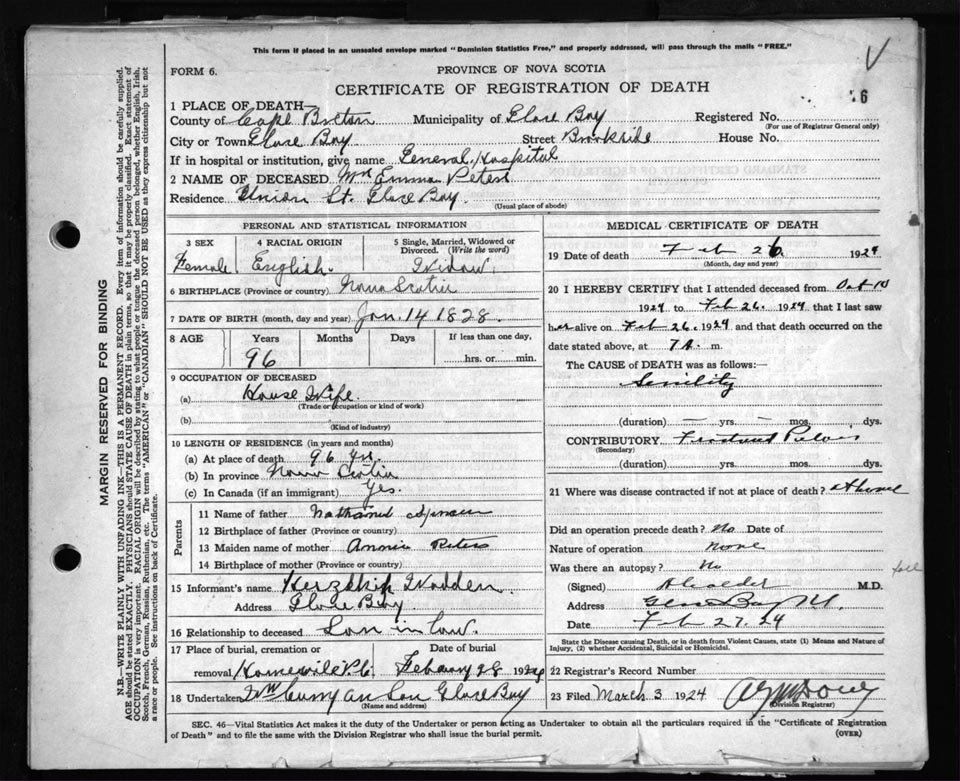 This form if placed in an unsealed envelope marked "Dominion Statistics Free," and properly addressed, will pass through the mails "FREE."
FORM 6.
PROVINCE OF NOVA SCOTIA
CERTIFICATE OF REGISTRATION OF DEATH
6
1 PLACE OF DEATH—
County of Cape Breton Municipality of Glace Bay Registered No.
(For use of Registrar General only)
City or Town Glace Bay Street Brookside House No.
If in hospital or institution, give name General Hospital
2 NAME OF DECEASED Mrs Emma Peters
Residence Union St. Glace Bay
(Usual place of abode)
PERSONAL AND STATISTICAL INFORMATION
3 SEX 4 RACIAL ORIGIN 5 Single, Married, Widowed or Divorced. (Write the word)
Female. English. Widow.
6 BIRTHPLACE (Province or country) Nova Scotia
7 DATE OF BIRTH (month, day and year) Jan. 14 1828.
8 AGE Years Months Days If less than one day,
96 hrs. or min.
9 OCCUPATION OF DECEASED
(a) House Wife.
(Trade or occupation or kind of work)
(b)
(Kind of industry)
10 LENGTH OF RESIDENCE (in years and months)
(a) At place of death 96 yrs.
(b) In province Nova Scotia
(c) In Canada (if an immigrant) Yes.
Parents
11 Name of father Nathaniel Spencer
12 Birthplace of father (Province or country)
13 Maiden name of mother Annie Peters
14 Birthplace of mother (Province or country)
15 Informant's name Wadden
Address Glace Bay
16 Relationship to deceased Son in law.
17 Place of burial, cremation or removal Date of burial
Homeville February 28 1924
18 Undertaker Wm Curry an Son Glace Bay
(Name and address)
MEDICAL CERTIFICATE OF DEATH
19 Date of death Feb 26 1924
(Month, day and year)
20 I HEREBY CERTIFY that I attended deceased from Oct 10
1924 to Feb 26. 1924 that I last saw
her alive on Feb 26. 1924 and that death occurred on the
date stated above, at 7 A. m.
The CAUSE of DEATH was as follows:—
Senility
(duration) — yrs. — mos. dys.
CONTRIBUTORY Fractured Pelvis
(Secondary)
(duration) yrs. mos. dys.
21 Where was disease contracted if not at place of death? at home
Did an operation precede death? No Date of
Nature of operation none
Was there an autopsy? No
(Signed) M.D.
Address Glace Bay
Date Feb 27. 24
State the Disease causing Death, or in death from Violent Causes, state (1) Means and Nature of Injury, (2) whether Accidental, Suicidal or Homicidal.
22 Registrar's Record Number
23 Filed March 3 1924
(Division Registrar)
SEC. 46—Vital Statistics Act makes it the duty of the Undertaker or person acting as Undertaker to obtain all the particulars required in the "Certificate of Registration
of Death" and to file the same with the Division Registrar who shall issue the burial permit.
(OVER)
MARGIN RESERVED FOR BINDING
N.B.—WRITE PLAINLY WITH UNFADING INK—THIS IS A PERMANENT RECORD. Every item of information should be carefully supplied.
AGE should be stated EXACTLY. PHYSICIANS should STATE CAUSE OF DEATH in plain terms, so that it may be properly classified. Exact statement of
OCCUPATION is very important. RACIAL ORIGIN will be described by stating to what people or tongue the deceased person belonged, whether English, Irish,
Scotch, French, German, Russian, Ruthenian, etc. The terms "AMERICAN" or "CANADIAN" SHOULD NOT BE USED as they express citizenship but not
a race or people. See instructions on back of Certificate.